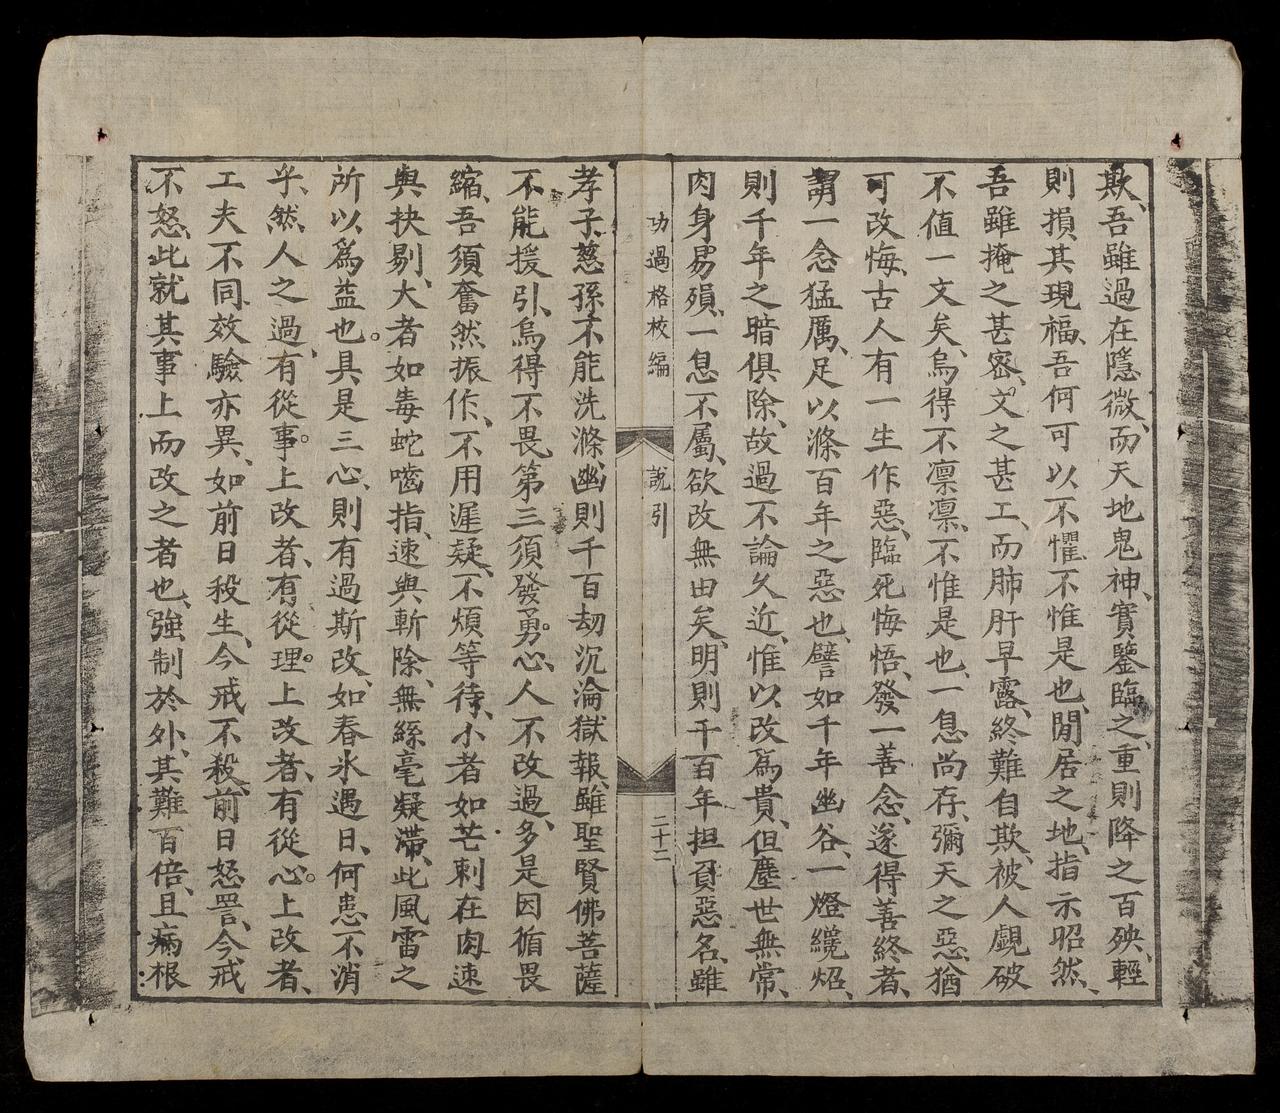 欺、吾雖過在隱微、而天地鬼神、實鑒臨之、重則降之百殃、輕
則損其現福、吾何可以不懼、不惟是也、閒居之地、指示昭然、
吾雖掩之甚密、文之甚工、而肺肝早露、終難自欺、被人覷破
不值一文矣、烏得不凛凛、不惟是也、一息尚存、彌天之惡、猶
可改悔、古人有一生作惡、臨死悔悟、發一善念、遂得善終者、
謂一念猛厲、足以滌百年之惡也、譬如千年幽谷、一燈纔炤、
則千年之暗俱除、故過不論久近、惟以改爲貴、但塵世無常、
肉身易殞、一息不屬、欲改無由矣、明則千百年担負惡名、雖
功過格校編
說引
二十二
孝子慈孫不能洗滌、幽則千百刼沉淪獄報、雖聖賢佛菩薩
不能援引、烏得不畏、第三須發勇心、人不改過、多是因循畏
縮、吾須奮然振作、不用遲疑、不煩等待、小者如芒刺在肉、速
與抉剔、大者如毒蛇嚙指、速與斬除、無絲毫凝滯、此風雷之
所以爲益也。具是三心、則有過斯改、如春氷遇日、何患不消
乎、然人之過、有從事。上改者、有從理。上改者、有從心。上改者、
工夫不同、效驗亦異、如前日殺生、今戒不殺、前日怒詈、今戒
不怒、此就其事上而改之者也、強制於外、其難百倍、且病根